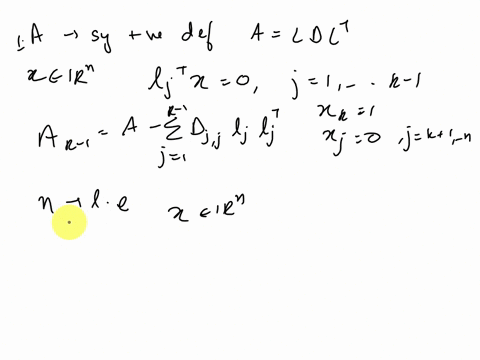 1. A → sy +ve def A = LDLᵀ
x ∈ ℝⁿ lⱼᵀ x = 0, j = 1, -.. k-1
xₖ = 1
Aₖ₋₁ = A - ∑ⱼ₌₁ᵏ⁻¹ Dⱼ,ⱼ lⱼ lⱼᵀ xⱼ = 0, j = k+1, -n
n → l.e x ∈ ℝⁿ